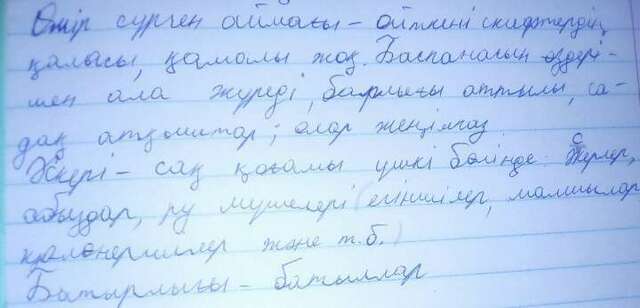 Өмір сүрген аймағы – өйткені скифтердің
қаласы, қамалы жоқ. Баспанасын өздері-
мен ала жүреді, барлығы аттылы, са-
дақ атқыштар; олар жеңілмаз
Әскері – сақ қоғамы үшкі бөлінде: Жерлер,
абыздар, ру мүшелері (егіншілер, малшылар
қолөнершілер және т.б.)
Батырлығы – батыллар